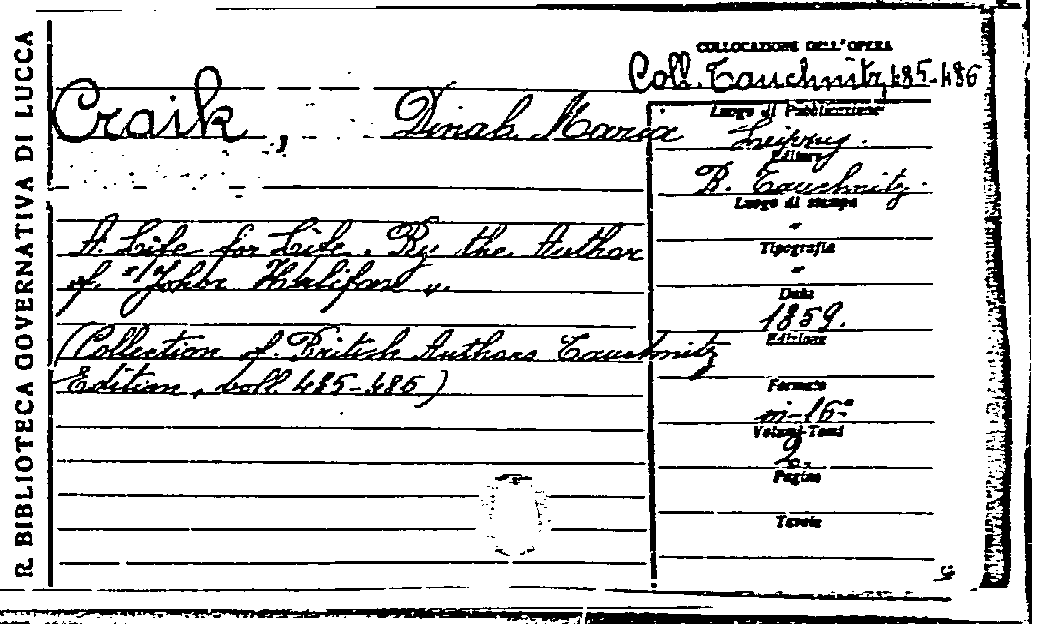 R. BIBLIOTECA GOVERNATIVA DI LUCCA
COLLOCAZIONE DELL'OPERA
Coll. Tauchnitz, 485-486
Craik, Dinah Maria
A Life for Life. By the Author
of "John Halifax".
(Collection of British Authors Tauchnitz
Edition, voll. 485-486)
Luogo di Pubblicazione
Leipzig.
Editore
B. Tauchnitz.
Luogo di stampa
"
Tipografia
"
Data
1859.
Edizione
Formato
in-16°
Volumi-Tomi
2.
Pagine
Tavole